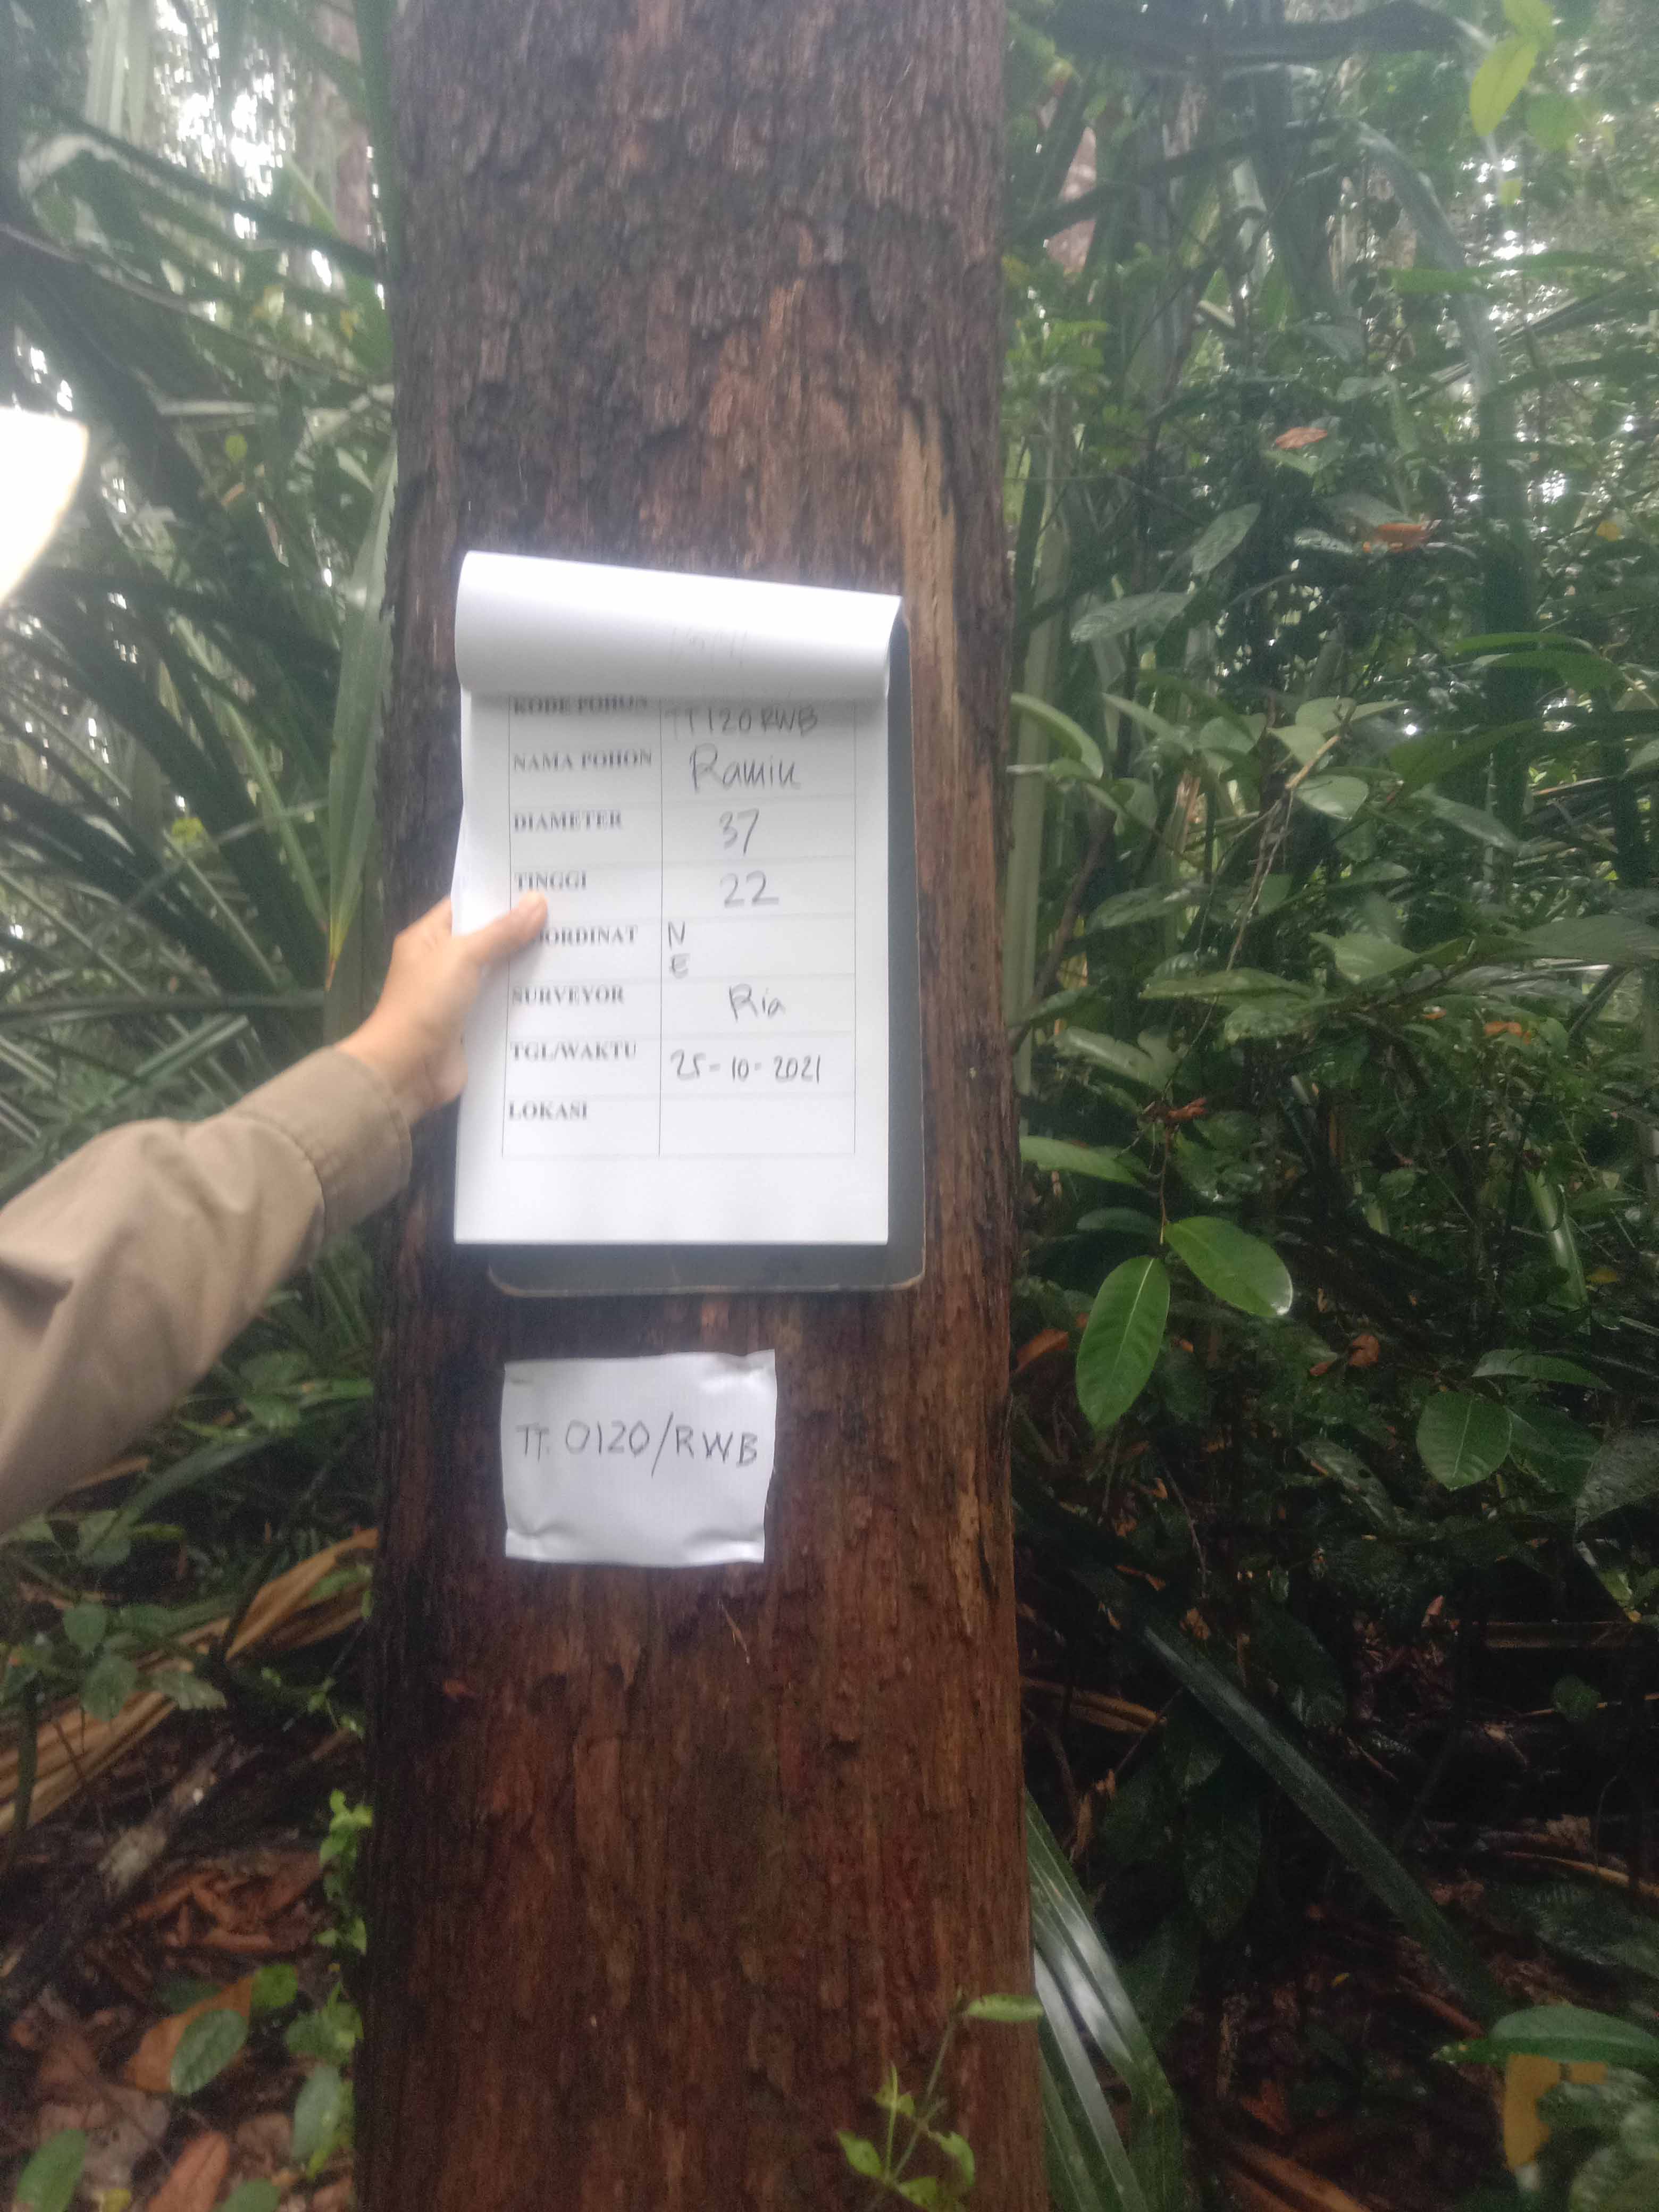 KODE POHON TT120RWB
NAMA POHON Ramin
DIAMETER 37
TINGGI 22
OORDINAT N
E
SURVEYOR Ria
TGL/WAKTU 25-10-2021
LOKASI
TT. 0120/RWB